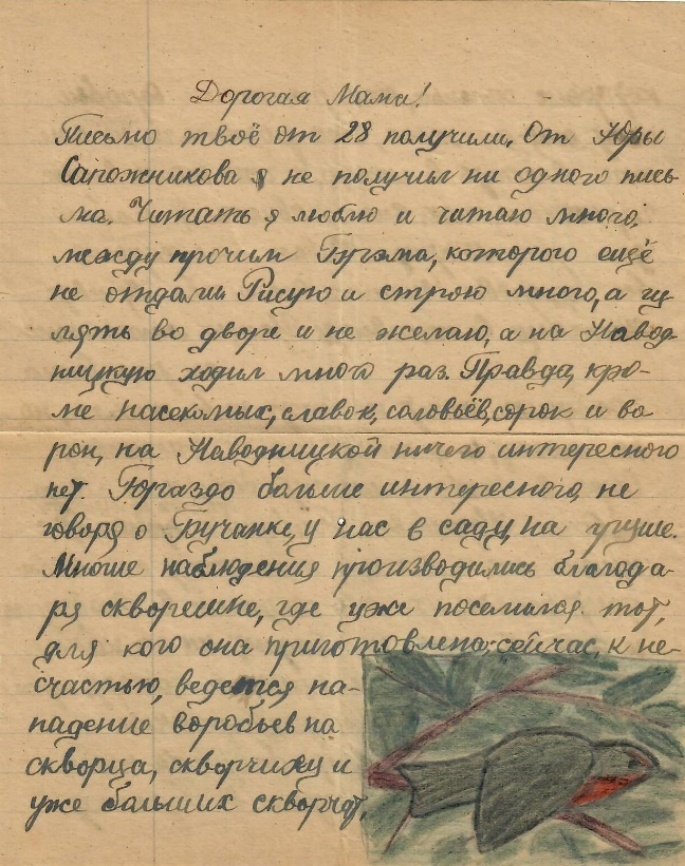 Дорогая Мама!
Письмо твоё от 28 получили. От Юры
Сапожникова я не получил ни одного пись-
ма. Читать я люблю и читаю много,
между прочим Брэма, которого ещё
не отдали. Рисую и строю много, а гу
лять во дворе и не желаю, а на Навод-
ницкую ходил много раз. Правда, кро-
ме насекомых, славок, соловьёв, сорок и во
рон, на Наводницкой ничего интересного
нет. Гораздо больше интересного, не
говоря о Бучанке, у нас в саду, на груше.
Многие наблюдения производились благода-
ря скворешне, где уже поселился тот,
для кого она приготовлена: сейчас, к не-
счастью, ведется на-
падение воробьев на
скворца, скворчиху и
уже больших скворчат,